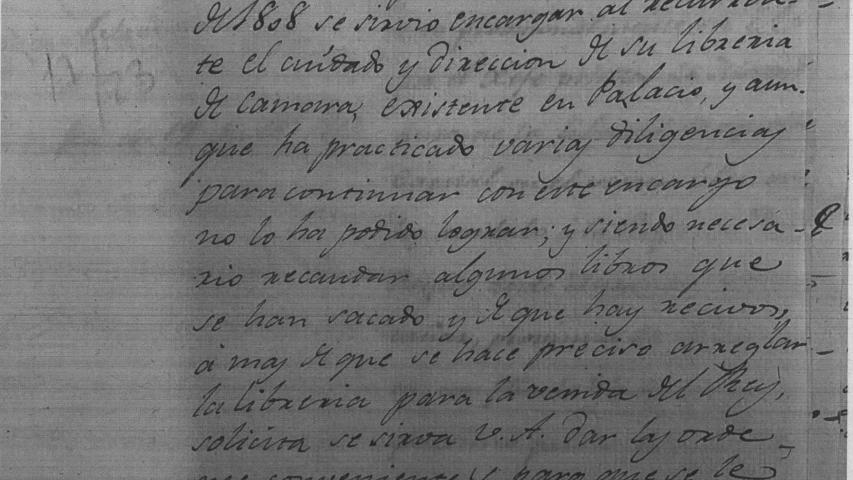 de 1808 se sirvio encargar al recurren-
te el cuidado y direccion de su libreria
de Camara, existente en Palacio, y aun-
que ha practicado varias diligencias
para continuar con este encargo
no lo ha podido lograr; y siendo necesa-
rio recaudar algunos libros que
se han sacado y de que hay recivos,
á mas de que se hace preciso arreglar
la libreria para la venida del Rey,
solicita se sirva V. A. dar las orde-
nes convenientes para que se le